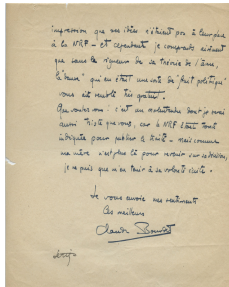 impression que ses idées n'étaient pas à leur place
à la NRF – et cependant je comprends aisément
que sans la rigueur de sa théorie de l'âme,
qui en était une sorte de "fruit politique"
vous ait semblé très gratuit.
Que voulez-vous : c'est un malentendu dont je serai
aussi triste que vous, car la NRF était tout
indiquée pour publier la suite – mais comme
ma mère n'est plus là pour revenir sur sa décision,
je ne puis que m'en tenir à sa volonté écrite.
Je vous envoie mes sentiments
les meilleurs
Claude